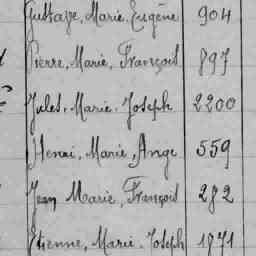 Gustave, Marie, Eugène 904
Pierre, Marie, François 897
Jules, Marie, Joseph 2200
Henri, Marie, Ange 559
Jean Marie, François 282
Etienne, Marie, Joseph 1871